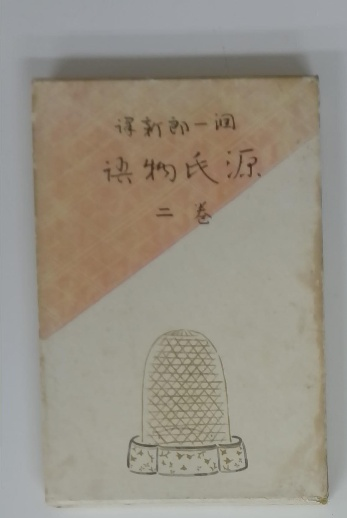 潤一郎新譯
源氏物語
巻二